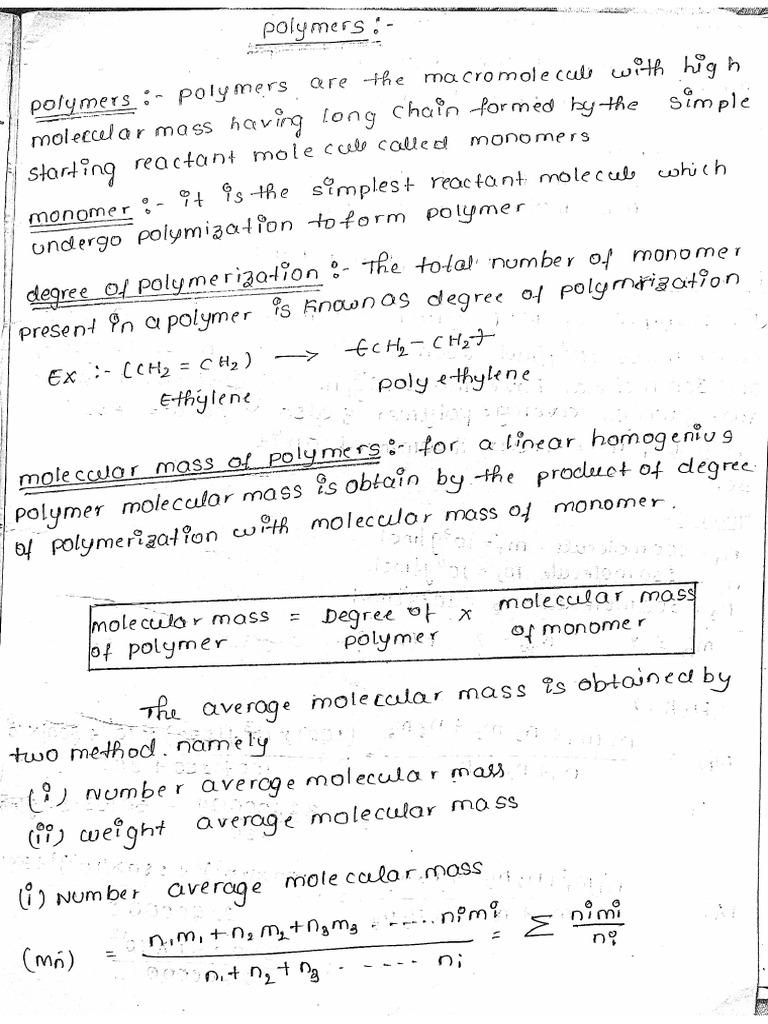 polymers :-
polymers :- polymers are the macromolecule with high
molecular mass having long chain formed by the simple
starting reactant molecule called monomers
monomer :- it is the simplest reactant molecule which
undergo polymization to form polymer
degree of polymerization :- The total number of monomer
present in a polymer is known as degree of polymrization
Ex :- (CH2 = CH2) → -(CH2 - CH2)-
Ethylene polyethylene
molecular mass of polymers :- for a linear homogenius
polymer molecular mass is obtain by the product of degree
of polymerization with molecular mass of monomer.
molecular mass = Degree of x molecular mass
of polymer polymer of monomer
The average molecular mass is obtained by
two method. namely
(i) Number average molecular mass
(ii) weight average molecular mass
(i) Number average molecular mass
(Mn) = n1m1 + n2m2 + n3m3 - ---- nimi / n1 + n2 + n3 - ---- ni = Σ nimi / ni